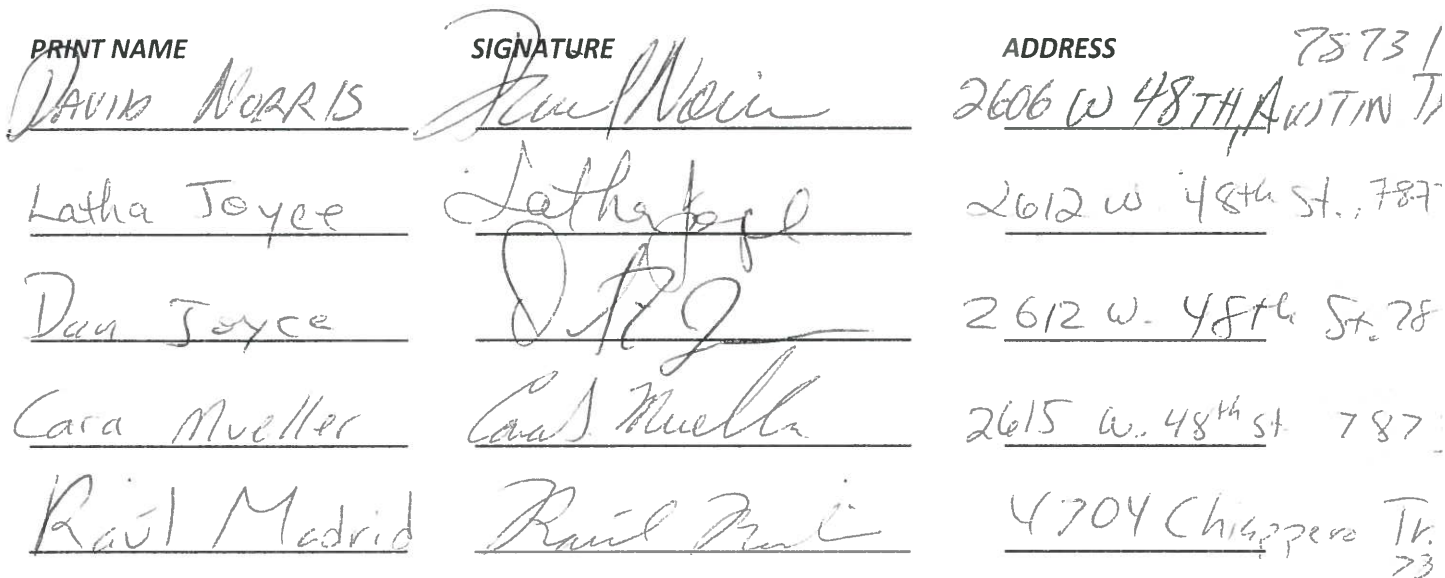 PRINT NAME SIGNATURE ADDRESS 78731
DAVID NORRIS David Norris 2606 W 48TH, AUSTIN TX
Latha Joyce Latha Joyce 2612 W 48th St., 787
Dan Joyce D R J 2612 W. 48th St. 78
Cara Mueller Cara S Mueller 2615 W. 48th St 787
Raúl Madrid Raúl 4704 Chiappero Tr.